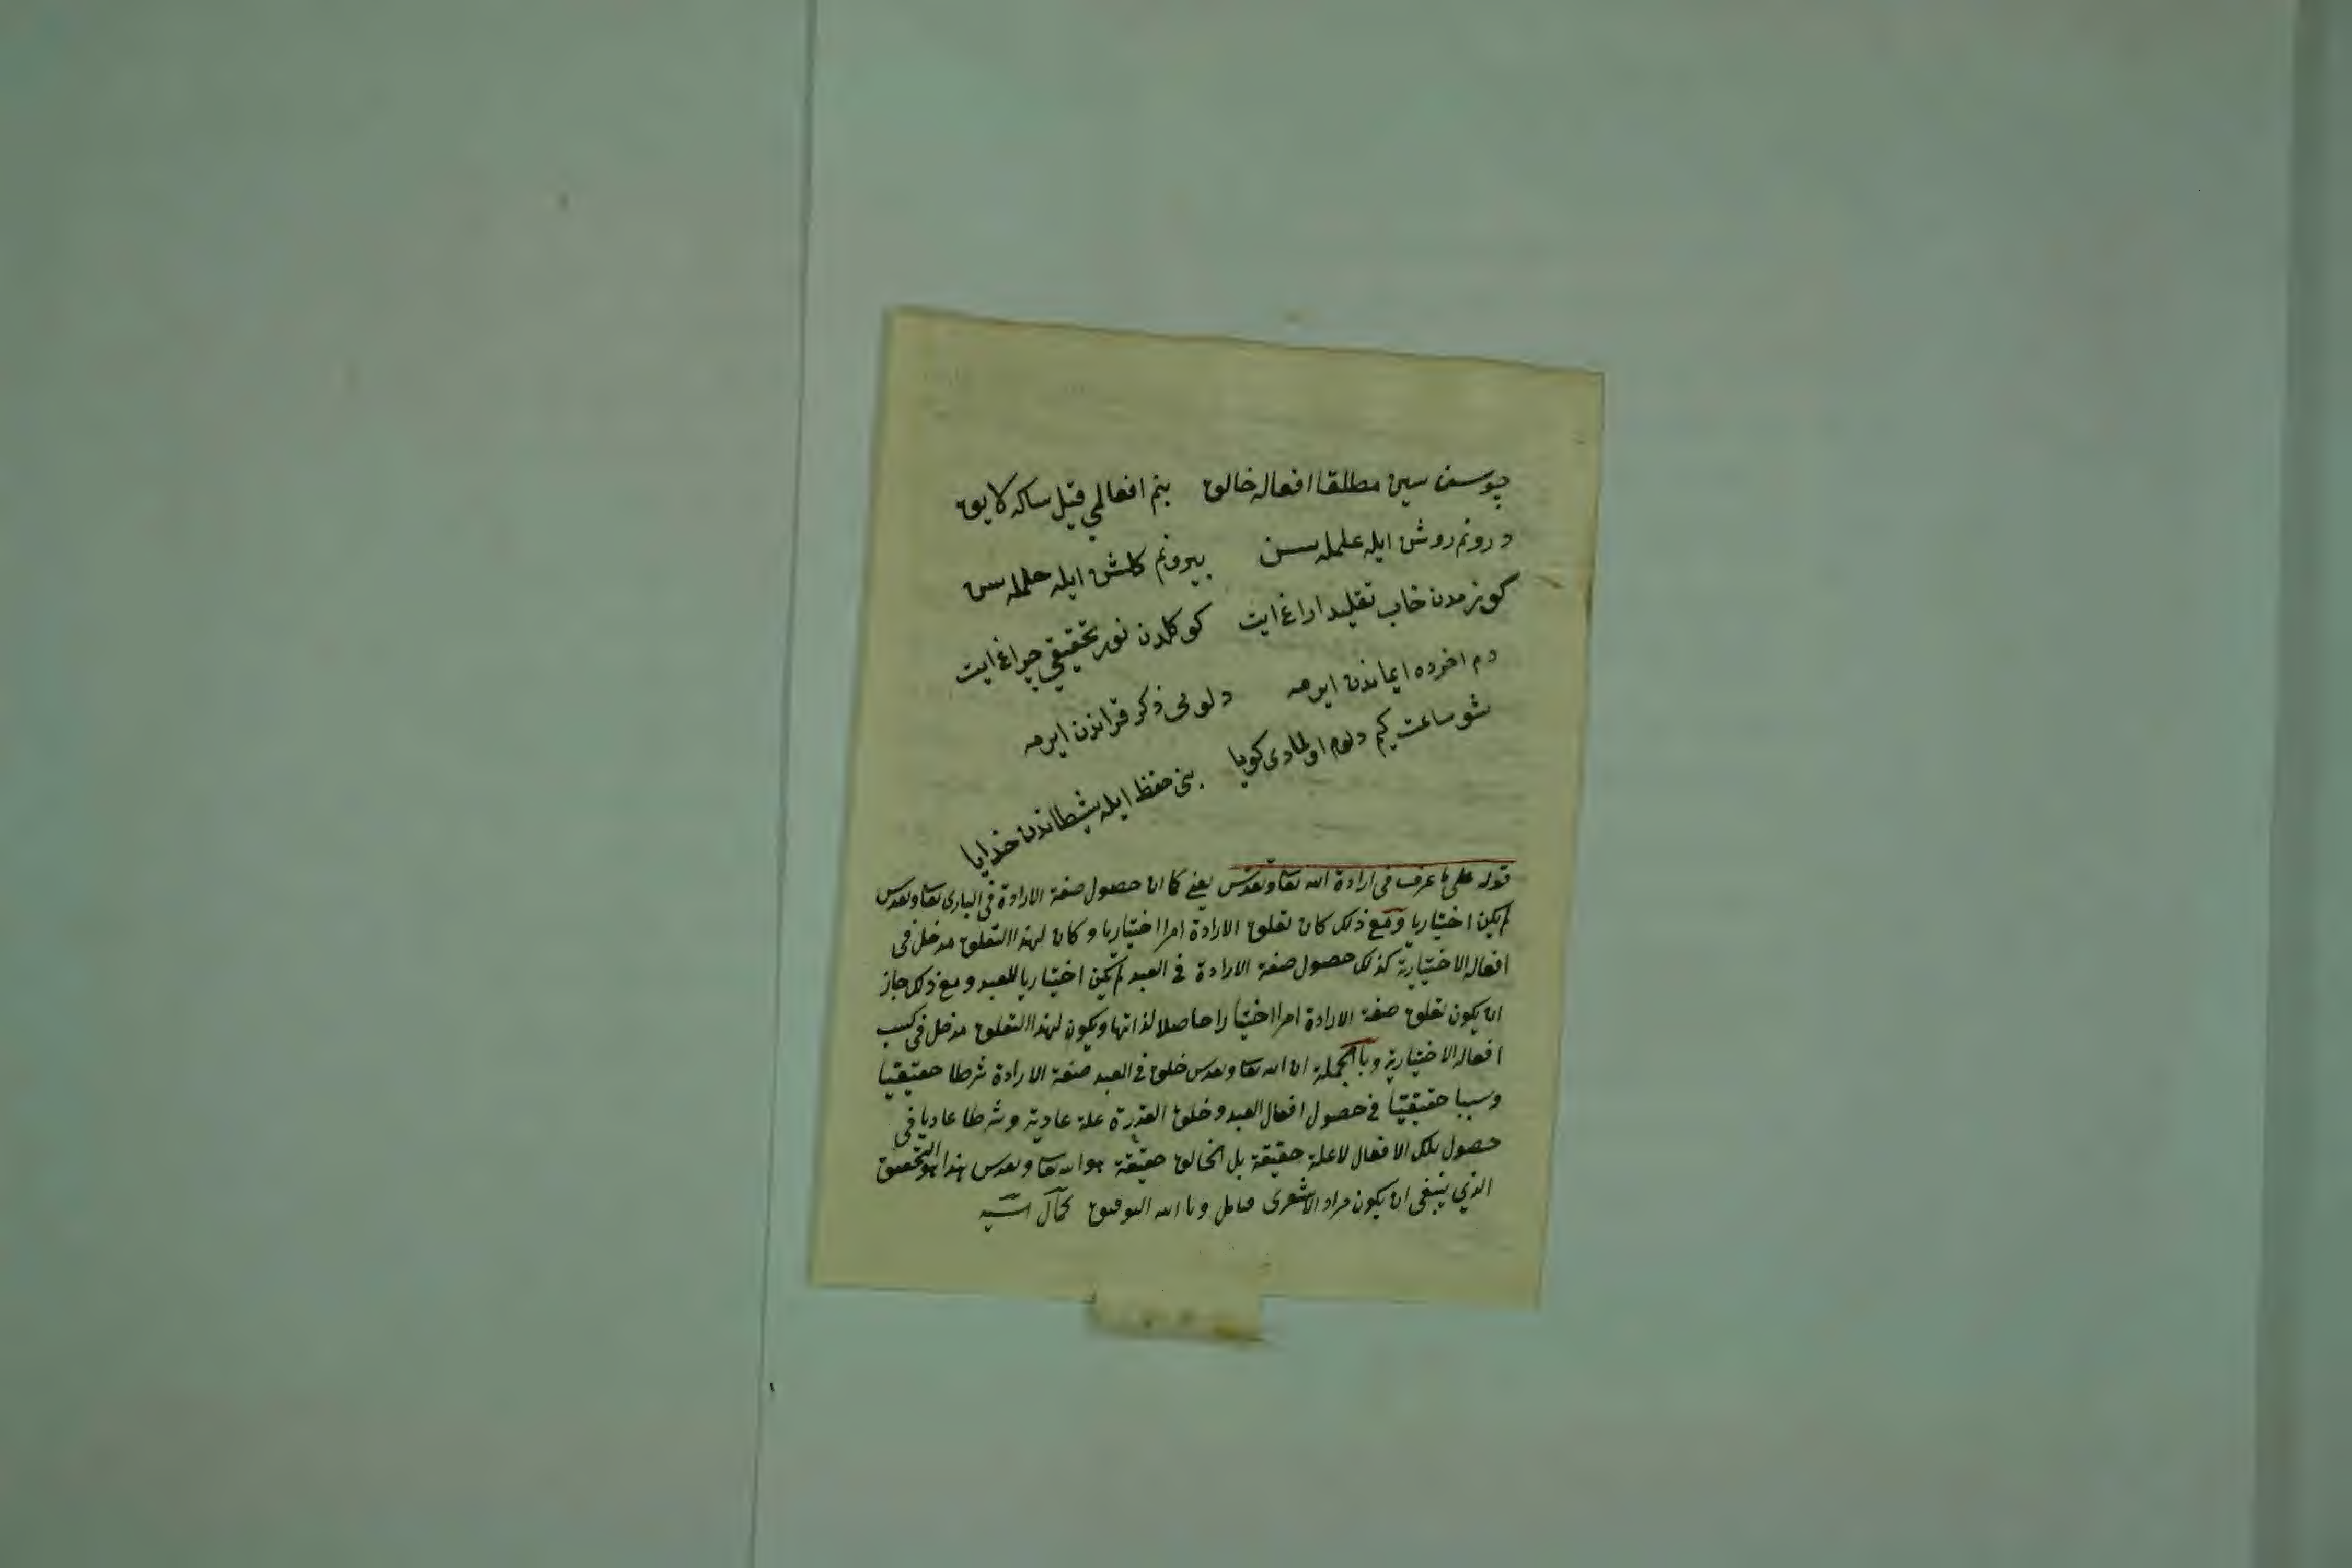 چوسن سين مطلقا افعاله خالق بنم افعالمي قيل ساكه لايق
درونم روشن ايله علمله سن بيرونم كلشن ايله حلمله سن
كوزمدن خاب تقليد اراغ ايت كوكلدن نور تحقيقي چراغ ايت
دم اخرده ايماندن ايرمه دلومى ذكر قراندن ايرمه
شو ساعت كيم دلوم اولمادى كويا بنى حفظ ايله شيطاندن خدايا
قوله على ما عرف فى ارادة الله تعا وتقدس يعنے كما ان حصول صفة الارادة فى البارى تعا وتقدس
لم يكن اختياريا ومع ذلك كان تعلق الارادة امرا اختياريا وكان لهذا التعلق مدخل فى
افعاله الاختيارية كذلك حصول صفة الارادة فى العبد لم يكن اختياريا للعبد ومع ذلك جاز
ان يكون تعلق صفة الارادة امرا اختيارا حاصلا لذاتها ويكون لهذا التعلق مدخل فى كسب
افعاله الاختيارية وبا الجملة ان الله تعا وتقدس خلق فى العبد صفة الارادة شرطا حقيقيا
وسببا حقيقيا فى حصول افعال العبد وخلق القدرة علة عادية وشرطا عاديا فى
حصول تلك الافعال لا علة حقيقة بل الخالق حقيقة هو الله تعا وتقدس هذا هو التحقيق
الذي ينبغى ان يكون مراد الاشعرى فتامل وبا الله التوفيق كمال